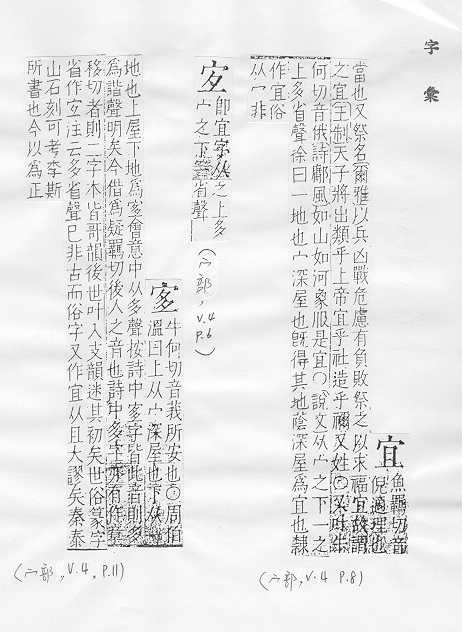 字彙
宜
魚羈切音
倪適理也
當也又祭名爾雅以兵凶戰危慮有負敗祭之以求福宜故謂
之宜王制天子將出類乎上帝宜乎社造乎禰又姓〇又叶牛
何切音俄詩鄘風如山如河象服是宜〇說文从宀之下一之
上多省聲徐曰一地也宀深屋也旣得其地蔭深屋爲宜也隸
作宜俗
从冖非
(宀部, v.4 P.8)
即宜字从之上多
宀之下省聲
(宀部, v.4 P.6)
牛何切音莪所安也〇周伯
溫曰上从宀深屋也下从
地也上屋下地爲會意中从多聲按詩中字皆此音則多
爲諧聲明矣今借爲疑羈切後人之音也詩中多亦有作
移切者則二字本皆哥韻後世叶入支韻迷其初矣世俗篆字
省作注云多省聲已非古而俗字又作宜从且大謬矣秦泰
山石刻可考李斯
所書也今以爲正
(宀部, v.4, P.11)